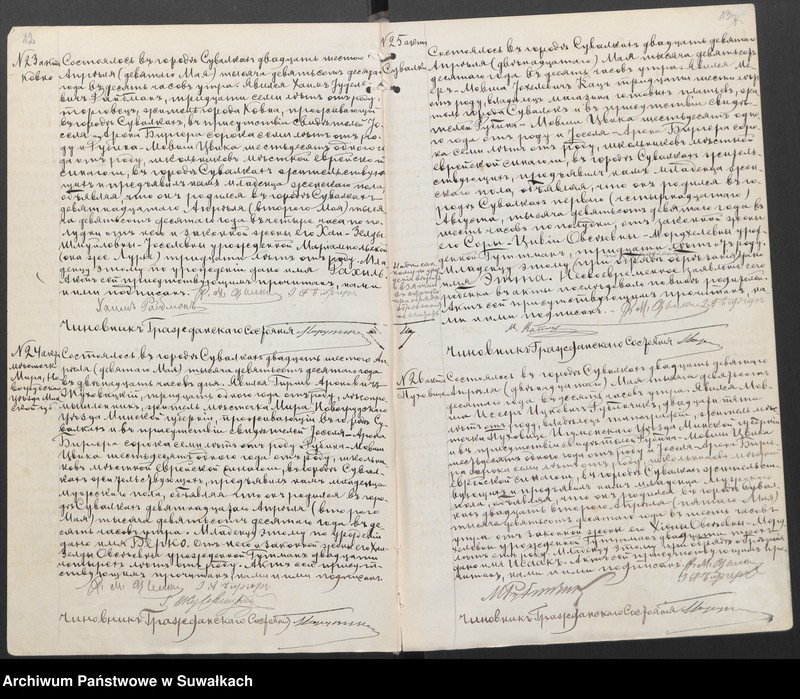 12.
№23 актъ
Ковно
Состоялось въ городѣ Сувалкахъ двадцать шестого
Апрѣля (девятаго Мая) тысяча девятьсотъ десятаго
года въ десять часовъ утра. Явился Хаимъ
тридцати семи лѣтъ отъ роду,
торговецъ, житель города Ковна, проживающій
въ городѣ Сувалкахъ, въ присутствіи свидѣтелей Іо-
селя-Арона Биргера сорока семи лѣтъ отъ ро-
ду и Рубина-Мовши Цвика шестьдесятъ одного го-
да отъ роду, школьниковъ мѣстной еврейской
синагоги, въ городѣ Сувалкахъ жительствую-
щихъ и предъявилъ намъ младенца женскаго пола,
объявляя, что онъ родился въ городѣ Сувалкахъ
девятнадцатаго Апрѣля (второго Мая) тыся-
ча девятьсотъ десятаго года въ четыре часа по по-
лудни отъ него и законной жены его Хаи-Зелды
Шмуйловны-Іоселевны урожденной Маріампольской
(она же Лурье) тридцати лѣтъ отъ роду. Мла-
денцу этому по учрежденіи дано имя Рахиль.
Актъ сей присутствующимъ прочитанъ, нами
и ними подписанъ.
Чиновникъ Гражданскаго Состоянія
№24 актъ
Состоялось въ городѣ Сувалкахъ двадцать шестого Ап-
рѣля (девятаго Мая) тысяча девятьсотъ десятаго года
въ двѣнадцать часовъ дня. Явился Гиршъ Ароновичъ
Жуховицкій, тридцать одного года отъ роду,
житель мѣстечка Мира Новогрудскаго
Уѣзда Минской губерніи, проживающій въ городѣ Су-
валкахъ и въ присутствіи свидѣтелей Іоселя-Арона
Биргера сорока семи лѣтъ отъ роду и Рубина-Мовши
Цвика шестьдесятъ одного года отъ роду, школьни-
ковъ мѣстной еврейской синагоги, въ городѣ Сувал-
кахъ жительствующихъ, предъявилъ намъ младенца
мужскаго пола, объявляя что онъ родился въ горо-
дѣ Сувалкахъ девятнадцатаго Апрѣля (второго
Мая) тысяча девятьсотъ десятаго года въ де-
сять часовъ утра. Младенцу этому по
дано имя БЕРКО. Отъ него и законной жены его Хаи-
Зелды Овсеевны урожденной Гутманъ двадцати
четырехъ лѣтъ отъ роду. Актъ сей присут-
ствующимъ прочитанъ нами и ними подписанъ.
Чиновникъ Гражданскаго Состоянія
13
№25 актъ
Сувалки
Состоялось въ городѣ Сувалкахъ двадцать девятаго
Апрѣля (двѣнадцатаго) Мая тысяча девятьсотъ
десятаго года въ десять часовъ утра. Явился Ме-
еръ-Мовша Іохелевичъ Кацъ тридцати шести лѣтъ
отъ роду, владѣлецъ магазина готовыхъ платьевъ, жи-
тель города Сувалокъ и въ присутствіи свидѣ-
телей Рубина-Мовши Цвика шестьдесятъ одно-
го года отъ роду и Іоселя-Арона Биргера соро-
ка семи лѣтъ отъ роду, школьниковъ мѣстной
еврейской синагоги, въ городѣ Сувалкахъ житель-
ствующихъ, предъявилъ намъ младенца жен-
скаго пола, объявляя, что онъ родился въ го-
родѣ Сувалкахъ перваго (четырнадцатаго)
Августа, тысяча девятьсотъ девятаго года въ
шесть часовъ по полудни, отъ законной жены
его Соры-Цивіи Овсеевны-Мордхелевны урож-
денной Гутманъ тридцати лѣтъ отъ роду.
Младенцу этому при обрѣзаніи дали
имя Этка. Несвоевременное заявленіе сего
ребенка въ актъ послѣдовало по винѣ родителей.
Актъ сей присутствующимъ прочитанъ, на-
ми и ними подписанъ.
Чиновникъ Гражданскаго Состоянія
№26 актъ
Пуховичи
Состоялось въ городѣ Сувалкахъ двадцать девятаго
Апрѣля (двѣнадцатаго) Мая тысяча девятьсотъ
десятаго года въ десять часовъ утра. Явился Мов-
ша Иссеръ Ицковичъ Рубинчикъ, двадцати пяти
лѣтъ отъ роду, владѣлецъ типографіи, житель мѣс-
течка Пуховичъ Игуменскаго Уѣзда Минской губерніи
и въ присутствіи свидѣтелей Рубина-Мовши Цвика
шестьдесятъ одного года отъ роду и Іоселя-Арона Бирге-
ра сорока семи лѣтъ отъ роду, школьниковъ мѣстной
еврейской синагоги, въ городѣ Сувалкахъ жительст-
вующихъ и предъявилъ намъ младенца мужскаго
пола, объявляя, что онъ родился въ городѣ Сувал-
кахъ двадцать второго Апрѣля (пятаго Мая)
тысяча девятьсотъ десятаго года въ шесть часовъ
утра отъ законной жены его Хіены Овсеевны-Морд-
хелевны урожденной Гутманъ двадцати трехъ
лѣтъ отъ роду. Младенцу этому при обрѣзаніи
дано имя Исаакъ. Актъ сей присутствующимъ про-
читанъ, нами и ними подписанъ.
Чиновникъ Гражданскаго Состоянія
Archiwum Państwowe w Suwałkach